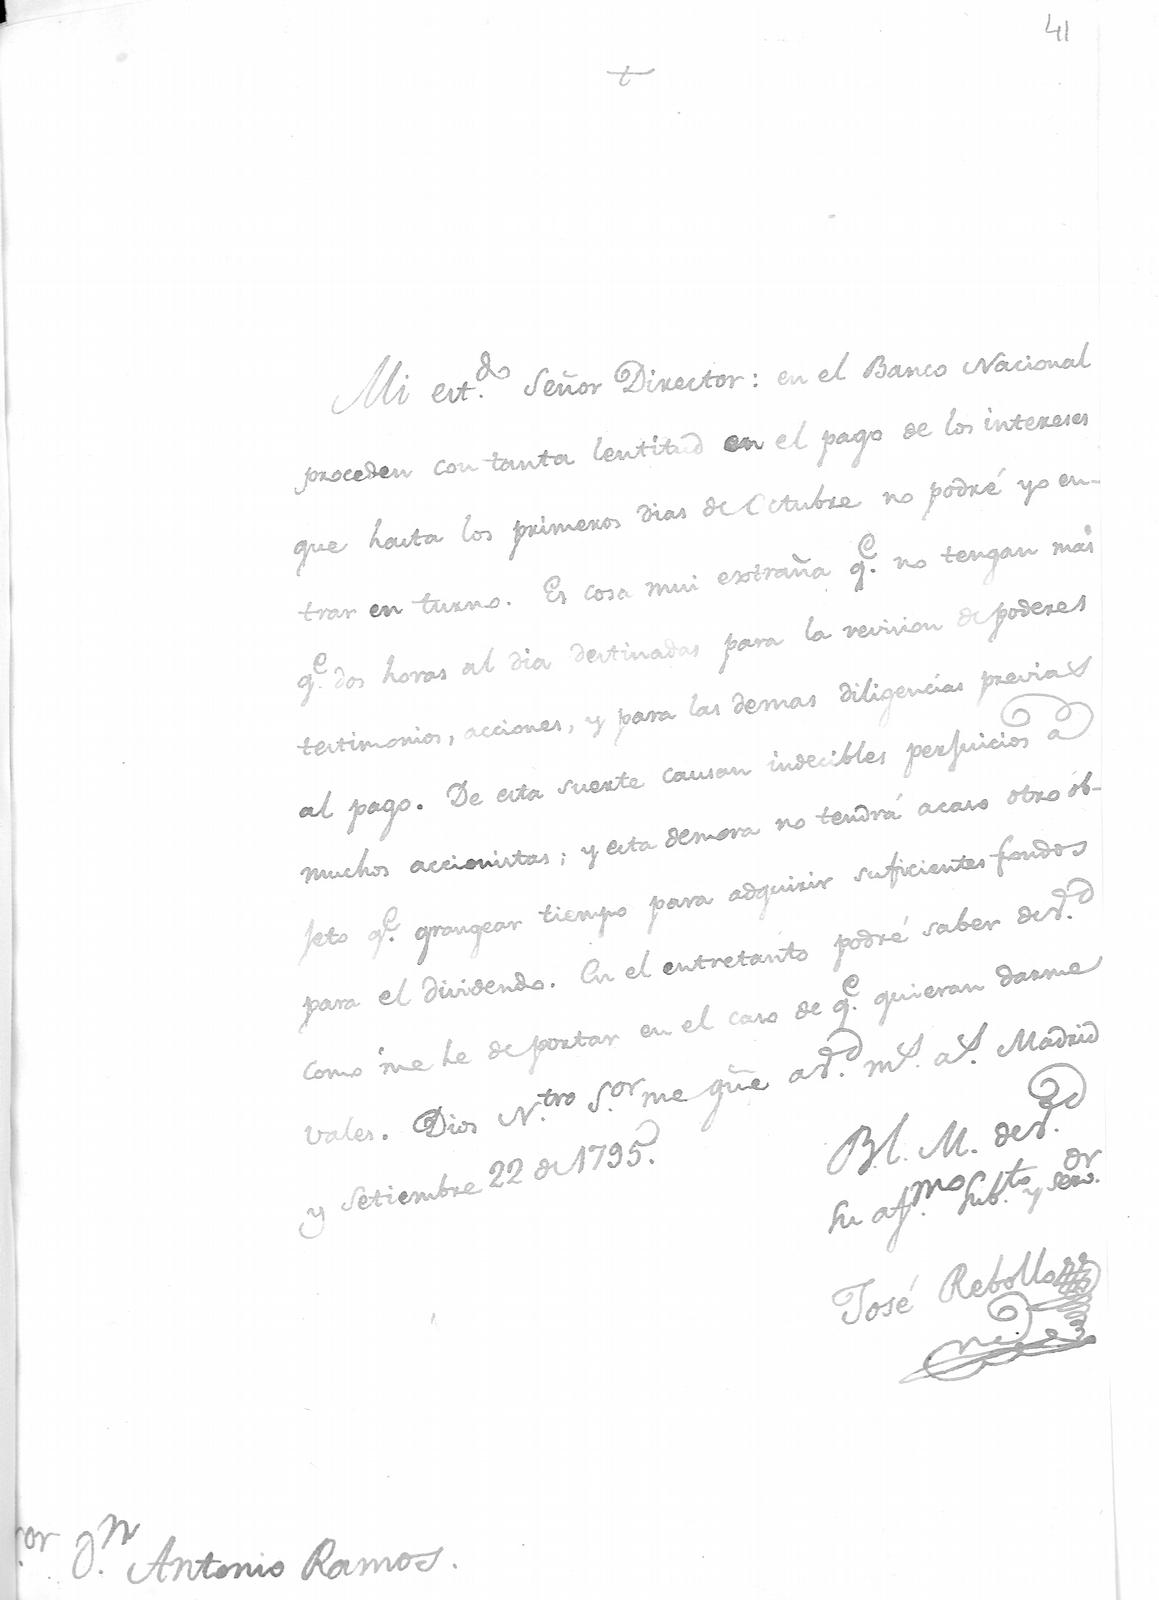 41
t
Mi est.do Señor Director: en el Banco Nacional
proceden con tanta lentitud en el pago de los intereses
que hasta los primeros dias de Octubre no podré yo en-
trar en turno. Es cosa mui extraña q.e no tengan más
q.e dos horas al dia destinadas para la revision de poderes
testimonios, acciones, y para las demas diligencias previas
al pago. De esta suerte causan indecibles perjuicios a
muchos accionistas; y esta demora no tendrá acaso otro ób-
jeto q.e grangear tiempo para adquirir suficientes fondos
para el dividendo. En el entretanto podré saber de V.d
como me he de portar en el caso de q.e quieran darme
vales. Dios N.tro S.or me güe a V.d m.s a.s Madrid
y Setiembre 22 de 1795.
B.l. M. de V.d
Su af.mo Sub.to y serv.or
José Rebollo
or D.n Antonio Ramos.